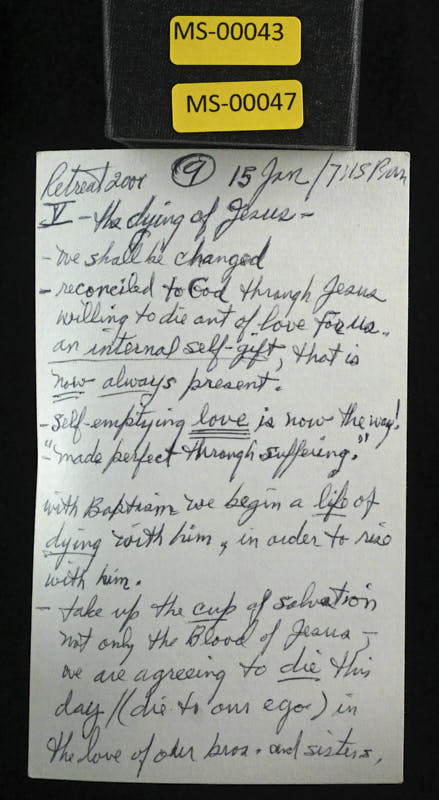 MS-00043
MS-00047
Retreat 2001 (9) 15 Jan / 7:15 P.m
V - the dying of Jesus -
- we shall be changed
- reconciled to God through Jesus
willing to die out of love for us.
an internal self-gift, that is
now always present.
- self-emptying love is now the way!
- "made perfect through suffering."
with Baptism we begin a life of
dying with him, in order to rise
with him.
- take up the cup of salvation
not only the Blood of Jesus -
we are agreeing to die this
day / (die to our ego) in
the love of our bros. and sisters,